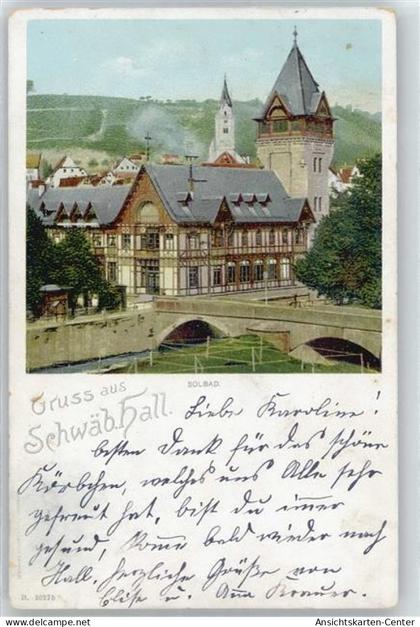 SOLBAD.
Gruss aus
Schwäb. Hall.
Liebe Karoline!
besten Dank für das schöne
Körbchen, welches uns Alle sehr
gefreut hat, bist du immer
gesund, komme bald wieder nach
Hall. herzliche Grüße von
Elise u. Anna Krauer.
D. 2027b
www.ansichtskarten-center.de
Ansichtskarten-Center.com